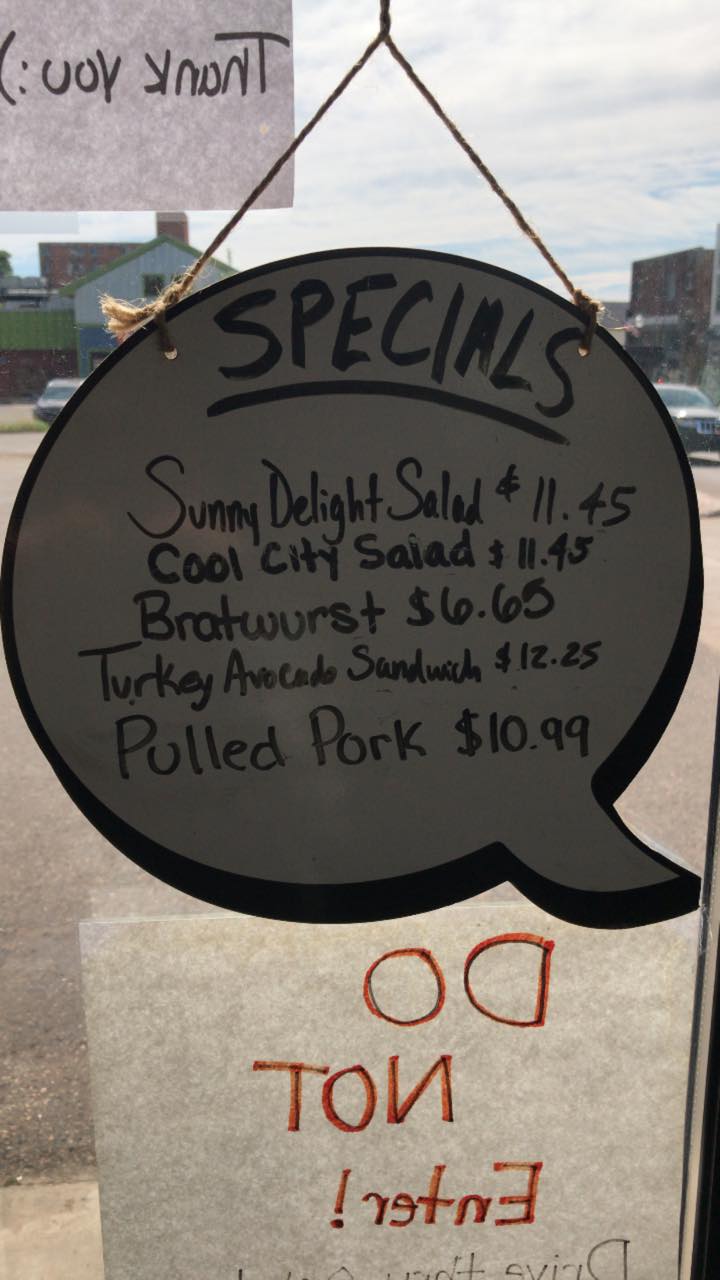 Thank you :)
SPECIALS
Sunny Delight Salad $11.45
Cool City Salad $11.45
Bratwurst $6.65
Turkey Avocado Sandwich $12.25
Pulled Pork $10.99
DO
NOT
Enter!
Drive thru